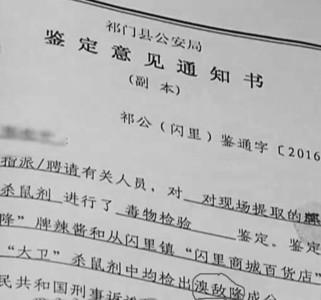 祁门县公安局
鉴定意见通知书
(副 本)
祁公(闪里)鉴通字〔2016
指派/聘请有关人员,对 对现场提取的
杀鼠剂 进行了 毒物检验 鉴定。鉴定
隆”牌辣酱和从闪里镇“闪里商城百货店”
“大卫”杀鼠剂中均检出溴敌隆成
民共和国刑事诉讼